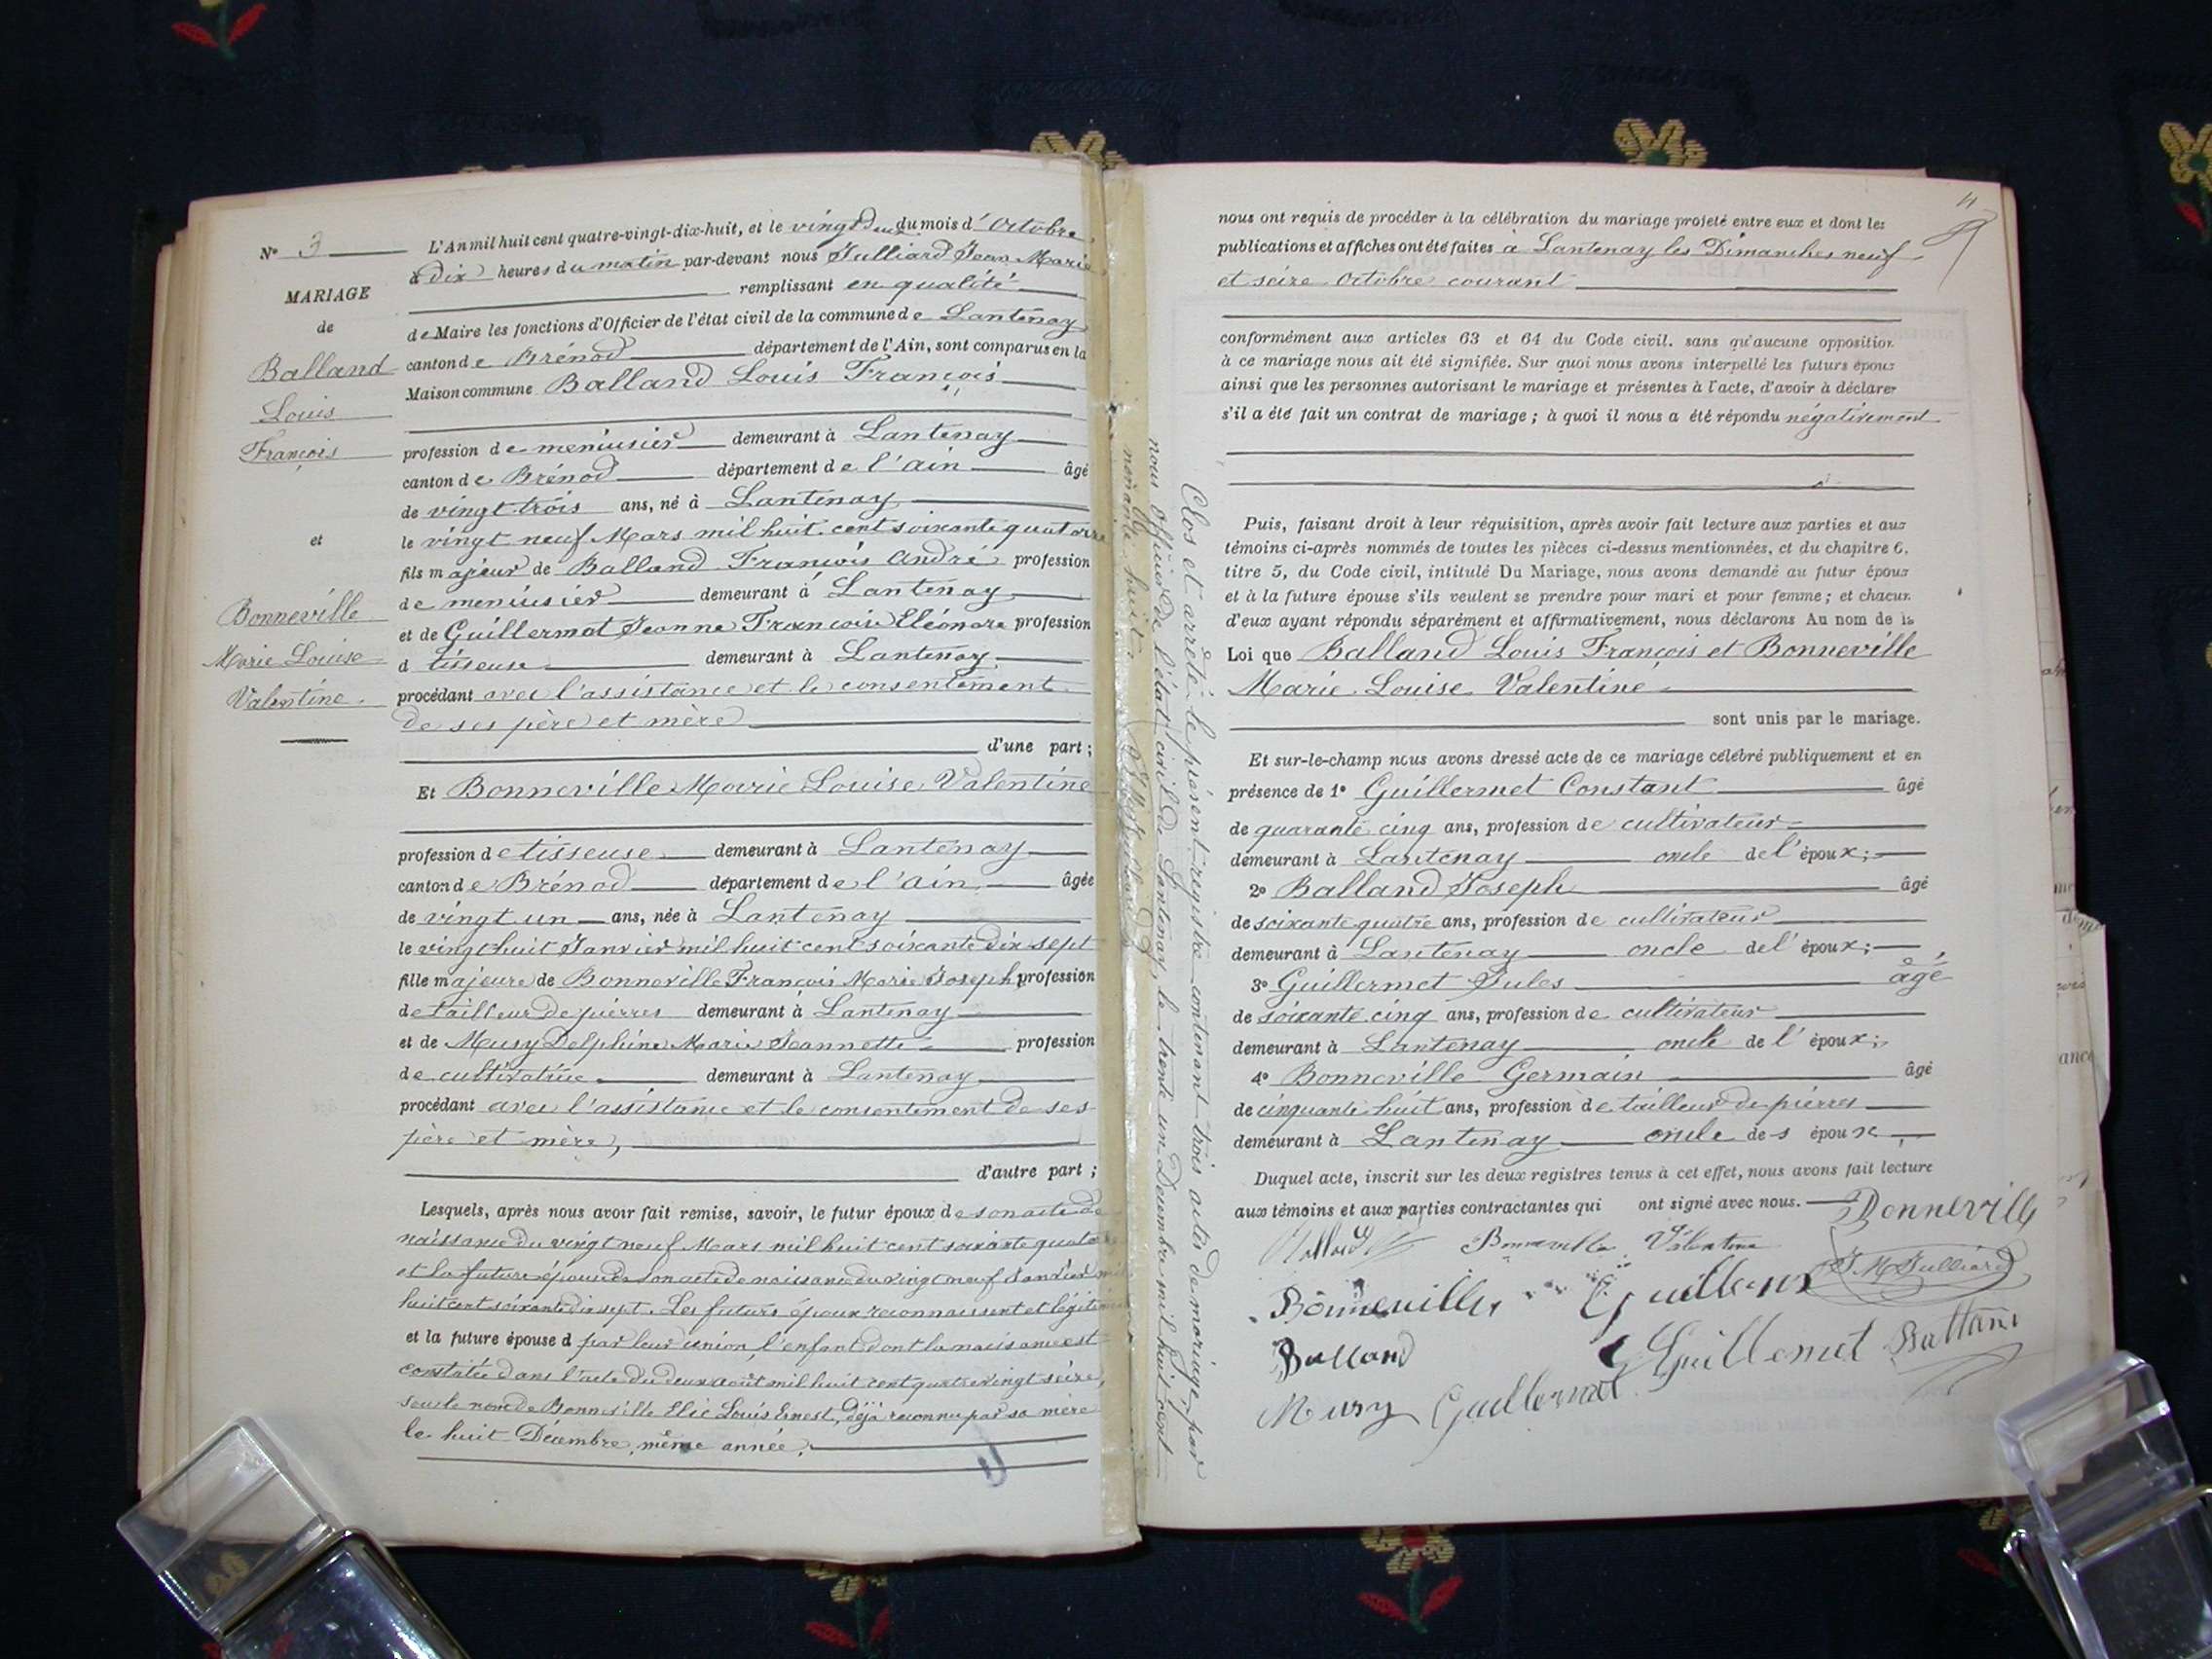 Nº 3
MARIAGE
de
Balland
Louis
François
et
Bonneville
Marie Louise
Valentine.
L'An mil huit cent quatre-vingt-dix-huit, et le vingt deux du mois d'Octobre,
à dix heures du matin par-devant nous Julliard Jean Marie
remplissant en qualité
de Maire les fonctions d'Officier de l'état civil de la commune de Lantenay
canton de Brénod département de l'Ain, sont comparus en la
Maison commune Balland Louis François
profession de menuisier demeurant à Lantenay
canton de Brénod département de l'ain âgé
de vingt trois ans, né à Lantenay
le vingt neuf Mars mil huit cent soixante quatorze
fils majeur de Balland François André profession
de menuisier demeurant à Lantenay
et de Guillermet Jeanne Françoise Eléonore profession
d tisseuse demeurant à Lantenay
procédant avec l'assistance et le consentement
de ses père et mère
d'une part ;
Et Bonneville Marie Louise Valentine
profession de tisseuse demeurant à Lantenay
canton de Brénod département de l'ain âgée
de vingt un ans, née à Lantenay
le vingt huit Janvier mil huit cent soixante dix sept
fille majeure de Bonneville François Marie Joseph profession
de tailleur de pierres demeurant à Lantenay
et de Musy Delphine Marie Jeannette profession
de cultivatrice demeurant à Lantenay
procédant avec l'assistance et le consentement de ses
père et mère,
d'autre part ;
Lesquels, après nous avoir fait remise, savoir, le futur époux de son acte de
naissance du vingt neuf Mars mil huit cent soixante quatorze
et la future épouse de son acte de naissance du vingt neuf Janvier mil
huit cent soixante dix sept. Les futurs époux reconnaissent et légitiment
et la future épouse d par leur union, l'enfant dont la naissance est
constatée dans l'acte du deux août mil huit cent quatre vingt seize,
sous le nom de Bonneville Elie Louis Ernest, déjà reconnu par sa mère
le huit Décembre, même année.
Clos et arrêté le présent registre contenant trois actes de mariage par
nous officier de l'état civil de Lantenay, le trente un Décembre mil huit cent
huit.
4
nous ont requis de procéder à la célébration du mariage projeté entre eux et dont les
publications et affiches ont été faites à Lantenay les Dimanches neuf
et seize Octobre courant
conformément aux articles 63 et 64 du Code civil. sans qu'aucune opposition
à ce mariage nous ait été signifiée. Sur quoi nous avons interpellé les futurs époux
ainsi que les personnes autorisant le mariage et présentes à l'acte, d'avoir à déclarer
s'il a été fait un contrat de mariage ; à quoi il nous a été répondu négativement
Puis, faisant droit à leur réquisition, après avoir fait lecture aux parties et aux
témoins ci-après nommés de toutes les pièces ci-dessus mentionnées, et du chapitre 6,
titre 5, du Code civil, intitulé Du Mariage, nous avons demandé au futur époux
et à la future épouse s'ils veulent se prendre pour mari et pour femme ; et chacun
d'eux ayant répondu séparément et affirmativement, nous déclarons Au nom de la
Loi que Balland Louis François et Bonneville
Marie Louise Valentine
sont unis par le mariage.
Et sur-le-champ nous avons dressé acte de ce mariage célébré publiquement et en
présence de 1º Guillermet Constant âgé
de quarante cinq ans, profession de cultivateur
demeurant à Lantenay oncle de l'époux ;
2º Balland Joseph âgé
de soixante quatre ans, profession de cultivateur
demeurant à Lantenay oncle de l'époux ;
3º Guillermet Jules âgé
de soixante cinq ans, profession de cultivateur
demeurant à Lantenay oncle de l'époux ;
4º Bonneville Germain âgé
de cinquante huit ans, profession de tailleur de pierres
demeurant à Lantenay oncle de s épouse
Duquel acte, inscrit sur les deux registres tenus à cet effet, nous avons fait lecture
aux témoins et aux parties contractantes qui ont signé avec nous. Bonneville
Balland Bonneville Valentine
J M Julliard
Bonneville Guillermet
Balland Guillermet Balland
Musy Guillermet